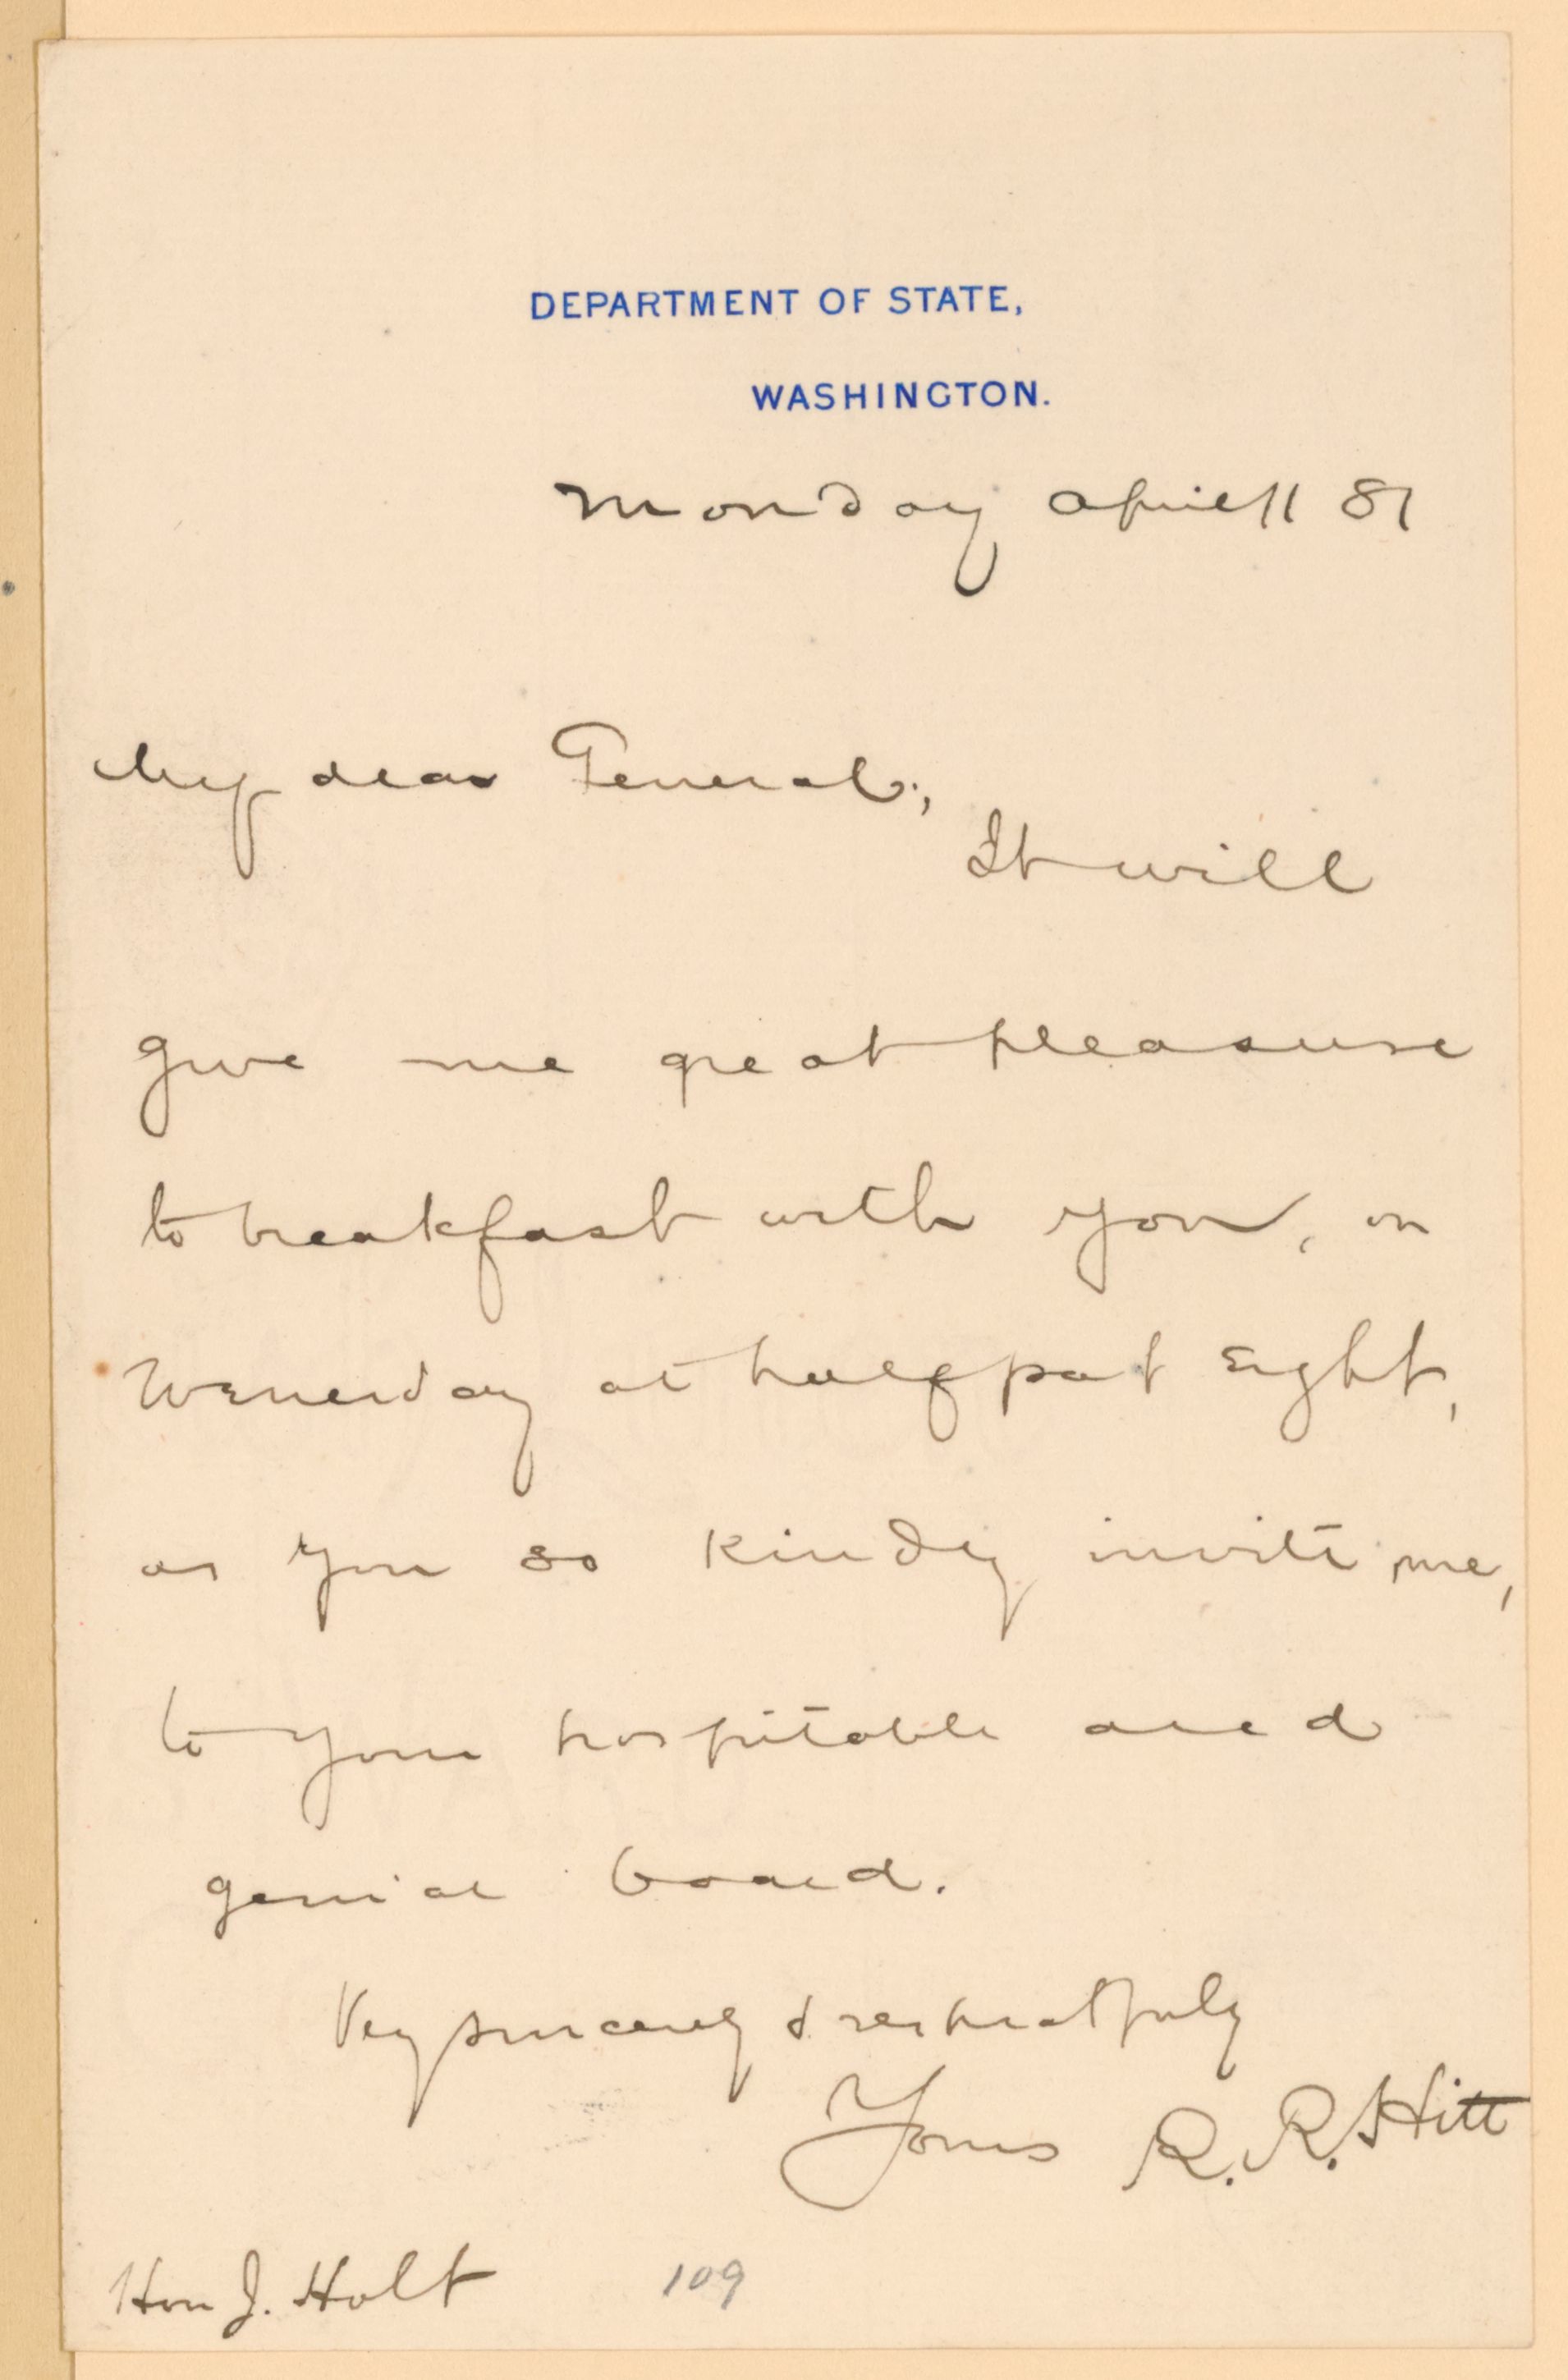 DEPARTMENT OF STATE,
WASHINGTON.
Monday April 11 81
My dear General;
It will
give me great pleasure
to breakfast with you, on
Wenesday at half past Eight,
as you so kindly invite me,
to your hospitable and
genial board.
Very sincerely & respectfully
Yours R. R. Hitt
Hon J. Holt 109